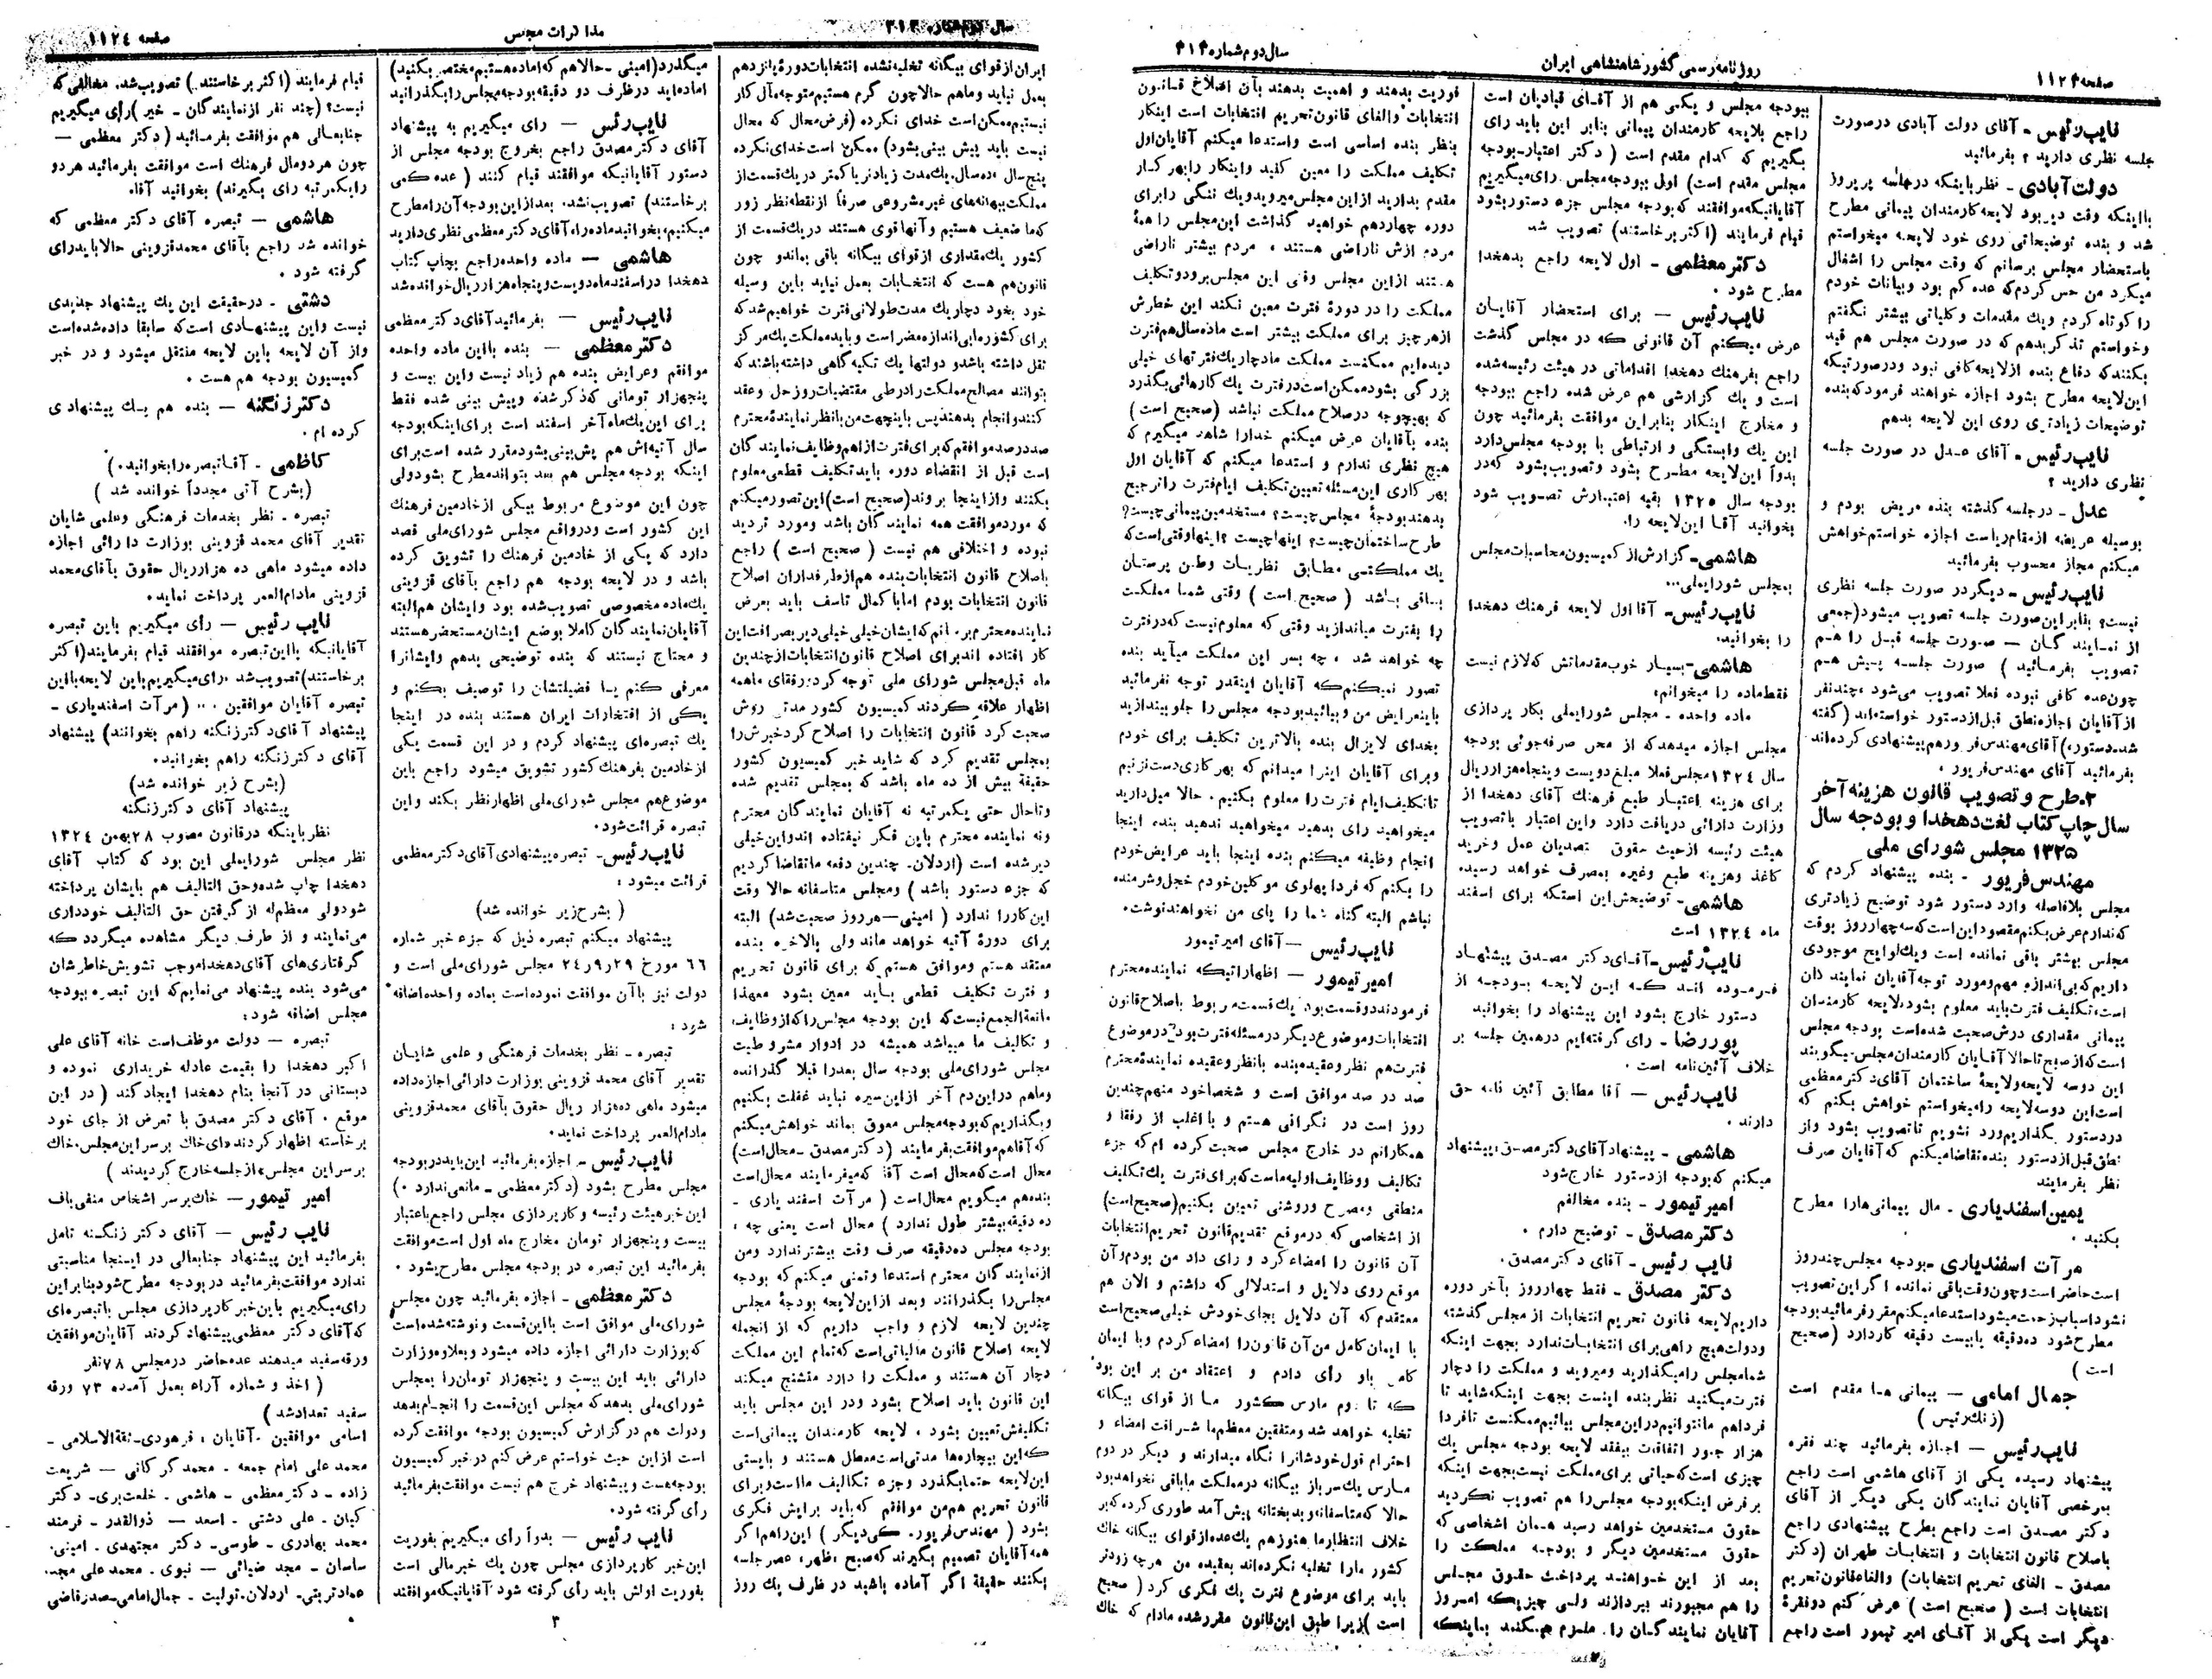 صفحه ۱۱۲۴
روزنامه رسمی کشور شاهنشاهی ایران
سال دوم شماره ۳۱۴
نایب رئیس - آقای دولت آبادی در صورت
جلسه نظری دارید ؟ بفرمائید
دولت آبادی - نظر باینکه در جلسه پریروز
بااینکه وقت دیر بود لایحه کارمندان پیمانی مطرح
شد و بنده توضیحاتی روی خود لایحه میخواستم
باستحضار مجلس برسانم که وقت مجلس را اشغال
میکرد من حس کردم که عده کم بود وبیانات خودم
را کوتاه کردم ویک مقدمات وکلیاتی بیشتر نگفتم
وخواستم تذکر بدهم که در صورت مجلس هم قید
بکنند که دفاع بنده از لایحه کافی نبود ودرصورتیکه
این لایحه مطرح بشود اجازه خواهند فرمود که بنده
توضیحات زیادتری روی این لایحه بدهم
نایب رئیس - آقای عدل در صورت جلسه
نظری دارید ؟
عدل - در جلسه گذشته بنده مریض بودم و
بوسیله عریضه از مقام ریاست اجازه خواستم خواهش
میکنم مجاز محسوب بفرمائید
نایب رئیس - دیگر در صورت جلسه نظری
نیست؟ بنابر این صورت جلسه تصویب میشود (جمعی
از نمایندگان — صورت جلسه قبل را هم
تصویب بفرمائید ) صورت جلسه پیش هم
چون عده کافی نبوده فعلا تصویب می‌شود ، چند نفر
از آقایان اجازه نطق قبل از دستور خواسته‌اند (گفته
شد دستور،) آقای مهندس فریور هم پیشنهادی کرده‌اند
بفرمائید آقای مهندس فریور .
۲ـ طرح و تصویب قانون هزینه آخر
سال چاپ کتاب لغت دهخدا و بودجه سال
۱۳۲۵ مجلس شورای ملی
مهندس فریور - بنده پیشنهاد کردم که
مجلس بلافاصله وارد دستور شود توضیح زیادتری
که ندارم عرض بکنم مقصود این است که سه چهار روز بوقت
مجلس بیشتر باقی نمانده است ویک لوایح موجودی
داریم که بی‌اندازه مهم ومورد توجه آقایان نمایندگان
است، تکلیف فترت باید معلوم بشود، لایحه کارمندان
پیمانی مقداری درش صحبت شده است بودجه مجلس
است که از صبح تا حالا آقایان کارمندان مجلس میگویند
این دوسه لایحه ولایحهٔ ساختمان آقای دکتر معظمی
است این دوسه لایحه را میخواستم خواهش بکنم که
در دستور بگذاریم ورد نشویم تا تصویب بشود واز
نطق قبل از دستور بنده تقاضا میکنم که آقایان صرف
نظر بفرمایند
یمین اسفندیاری - مال پیمانی‌ها را مطرح
بکنید .
مرآت اسفندیاری - بودجه مجلس چند روز
است حاضر است وچون وقت باقی نمانده اگر این تصویب
نشود اسباب زحمت میشود استدعا میکنم مقرر فرمائید بودجه
مطرح شود ده دقیقه یا بیست دقیقه کار دارد (صحیح
است )
جمال امامی — پیمانی ها مقدم است
(زنگ رئیس )
نایب رئیس — اجازه بفرمائید چند فقره
پیشنهاد رسیده یکی از آقای هاشمی است راجع
بمرخصی آقایان نمایندگان یکی دیگر از آقای
دکتر مصدق است راجع بطرح پیشنهادی راجع
باصلاح قانون انتخابات و انتخابات طهران (دکتر
مصدق - الغای تحریم انتخابات) والغاء قانون تحریم
انتخابات است ( صحیح است ) عرض کنم دو فقرهٔ
دیگر است یکی از آقای امیر تیمور است راجع
ببودجه مجلس و یکی هم از آقای قبادیان است
راجع بلایحه کارمندان پیمانی بنابر این باید رای
بگیریم که کدام مقدم است ( دکتر اعتبار - بودجه
مجلس مقدم است) اول ببودجه مجلس رای میگیریم
آقایانیکه موافقند که بودجه مجلس جزء دستور بشود
قیام فرمایند (اکثر برخاستند) تصویب شد
دکتر معظمی - اول لایحه راجع بدهخدا
مطرح شود .
نایب رئیس — برای استحضار آقایان
عرض میکنم آن قانونی که در مجلس گذشت
راجع بفرهنگ دهخدا اقداماتی در هیئت رئیسه شده
است و یک گزارشی هم عرض شده راجع ببودجه
و مخارج اینکار بنابراین موافقت بفرمائید چون
این یک وابستگی و ارتباطی با بودجه مجلس دارد
بدوا این لایحه مطرح بشود وتصویب بشود که در
بودجه سال ۱۳۲۵ بقیه اعتبارش تصویب شود
بخوانید آقا این لایحه را.
هاشمی - گزارش از کمیسیون محاسبات مجلس
بمجلس شورایملی...
نایب رئیس - آقا اول لایحه فرهنگ دهخدا
را بخوانید.
هاشمی - بسیار خوب مقدماتش که لازم نیست
فقط ماده را میخوانم:
ماده واحده - مجلس شورایملی بکار پردازی
مجلس اجازه میدهد که از محل صرفه جوئی بودجه
سال ۱۳۲٤ مجلس فعلا مبلغ دویست و پنجاه هزار ریال
برای هزینه اعتبار طبع فرهنگ آقای دهخدا از
وزارت دارائی دریافت دارد واین اعتبار با تصویب
هیئت رئیسه از حیث حقوق متصدیان عمل وخرید
کاغذ وهزینه طبع وغیره بمصرف خواهد رسید.
هاشمی - توضیحش این استکه برای اسفند
ماه ۱۳۲٤ است
نایب رئیس - آقای دکتر مصدق پیشنهاد
فرموده اند که این لایحه بودجه از
دستور خارج بشود این پیشنهاد را بخوانید
پوررضا - رای گرفته‌ایم در همین جلسه بر
خلاف آئین‌نامه است .
نایب رئیس — آقا مطابق آئین نامه حق
دارند .
هاشمی - پیشنهاد آقای دکتر مصدق: پیشنهاد
میکنم که بودجه از دستور خارج شود
امیر تیمور - بنده مخالفم
دکتر مصدق - توضیح دارم .
نایب رئیس - آقای دکتر مصدق.
دکتر مصدق - فقط چهار روز بآخر دوره
داریم لایحه قانون تحریم انتخابات از مجلس گذشته
ودولت هیچ راهی برای انتخابات ندارد بجهت اینکه
شما مجلس را میگذارید ومیروید و مملکت را دچار
فترت میکنید نظر بنده اینست بجهت اینکه شاید تا
فردا هم ما نتوانیم در این مجلس بیائیم ممکنست تا فردا
هزار جور اتفاقات بیفتد لایحه بودجه مجلس یک
چیزی است که حیاتی برای مملکت نیست بجهت اینکه
بر فرض اینکه بودجه مجلس را هم تصویب نکردید
حقوق مستخدمین خواهد رسید همان اشخاصی که
حقوق مستخدمین دیگر و بودجه مملکت را
بعد از این خواهند پرداخت حقوق مجلس
را هم مجبورند بپردازند ولی چیزیکه امروز
آقایان نمایندگان را ملزم میکند باینکه
فوریت بدهند و اهمیت بدهند بآن اصلاح قانون
انتخابات والغای قانون تحریم انتخابات است اینکار
بنظر بنده اساسی است واستدعا میکنم آقایان اول
تکلیف مملکت را معین کنید واینکار را بهر کار
مقدم بدارید از این مجلس میروید ویک ننگی را برای
دوره چهاردهم خواهید گذاشت این مجلس را همهٔ
مردم ازش ناراضی هستند ، مردم بیشتر ناراضی
هستند از این مجلس وقتی این مجلس برود وتکلیف
مملکت را در دورهٔ فترت معین نکند این خطرش
از هر چیز برای مملکت بیشتر است ما ده سال هم فترت
دیده‌ایم ممکنست مملکت ما دچار یک فترتهای خیلی
بزرگی بشود ممکن است در فترت یک کارهائی بگذرد
که بهیچوجه در صلاح مملکت نباشد (صحیح است)
بنده بآقایان عرض میکنم خدا را شاهد میگیرم که
هیچ نظری ندارم و استدعا میکنم که آقایان اول
بهر کاری این مسئله تعیین تکلیف ایام فترت را ترجیح
بدهند بودجهٔ مجلس چیست؟ مستخدمین پیمانی چیست؟
طرح ساختمان چیست؟ اینها چیست ؟ اینها وقتی است که
یک مملکتی مطابق نظریات وطن پرستان
باقی باشد ( صحیح است ) وقتی شما مملکت
را بفترت میاندازید وقتی که معلوم نیست که در فترت
چه خواهد شد ، چه بسر این مملکت میآید بنده
تصور نمیکنم که آقایان اینقدر توجه نفرمائید
باین عرایض من و بیائید بودجه مجلس را جلو بیندازید
بخدای لایزال بنده بالاترین تکلیف برای خودم
وبرای آقایان اینرا میدانم که بهر کاری دست نزنیم
تا تکلیف ایام فترت را معلوم بکنیم . حالا میل دارید
میخواهید رای بدهید میخواهید ندهید بنده، اینجا
انجام وظیفه میکنم بنده اینجا باید عرایض خودم
را بکنم که فردا پهلوی موکلین خودم خجل وشرمنده
نباشم البته گناه شما را پای من نخواهند نوشت.
نایب رئیس — آقای امیر تیمور
امیر تیمور — اظهاراتیکه نماینده محترم
فرمودند دو قسمت بود یک قسمت مربوط باصلاح قانون
انتخابات و موضوع دیگر در مسئله فترت بود. در موضوع
فترت هم نظر و عقیده بنده با نظر وعقیده نمایندهٔ محترم
صد در صد موافق است و شخصا خود منهم چندین
روز است در نگرانی هستم و با اغلب از رفقا و
همکارانم در خارج مجلس صحبت کرده ام که جزء
تکالیف ووظایف اولیه ماست که برای فترت یک تکلیف
منطقی وصریح وروشنی تعیین بکنیم (صحیح است)
از اشخاصی که در موقع تقدیم قانون تحریم انتخابات
آن قانون را امضاء کرد و رای داد من بودم و آن
موقع روی دلایل و استدلالی که داشتم و الان هم
معتقدم که آن دلایل بجای خودش خیلی صحیح است
با ایمان کامل من آن قانون را امضاء کردم وبا ایمان
کامل باو رأی دادم و اعتقاد من بر این بود
که تا دوم مارس کشور ما از قوای بیگانه
تخلیه خواهد شد ومتفقین معظم ما شرافت امضاء و
احترام قول خودشانرا نگاه میدارند و دیگر در دوم
مارس یک سرباز بیگانه در مملکت ما باقی نخواهد بود
حالا که متاسفانه و بدبختانه پیش آمد طوری کرده که بر
خلاف انتظار ما هنوز هم یک عده از قوای بیگانه خاک
کشور ما را تخلیه نکرده‌اند بعقیده من هرچه زودتر
باید برای موضوع فترت یک فکری کرد ( صحیح
است ) زیرا طبق این قانون مقرر شده مادام که خاک
سال دوم شماره ۳۱۴
مذاکرات مجلس
صفحه ۱۱۲٤
ایران از قوای بیگانه تخلیه نشده انتخابات دورهٔ پانزدهم
بعمل نیاید وما هم حالا چون گرم هستیم متوجه مآل کار
نیستیم ممکن است خدای نکرده (فرض محال که محال
نیست باید پیش بینی بشود) ممکن است خدای نکرده
پنج سال ده سال، یک مدت زیادتر یا کمتر در یک قسمت از
مملکت ببهانه‌های غیر مشروعی صرفاً از نقطه نظر زور
که ما ضعیف هستیم و آنها قوی هستند در یک قسمت از
کشور یک مقداری از قوای بیگانه باقی بماند و چون
قانون هم هست که انتخابات بعمل نیاید باین وسیله
خود بخود دچار یک مدت طولانی فترت خواهیم شد که
برای کشور ما بی‌اندازه مضر است و باید مملکت یک مرکز
ثقل داشته باشد و دولتها یک تکیه گاهی داشته باشند که
بتوانند مصالح مملکت را در طی مقتضیات روز حل و عقد
کنند وانجام بدهند پس باینجهت من با نظر نمایندهٔ محترم
صد در صد موافقم که برای فترت از اهم وظایف نمایندگان
است قبل از انقضاء دوره باید تکلیف قطعی معلوم
بکنند واز اینجا بروند (صحیح است) این تصور میکنم
که مورد موافقت همه نمایندگان باشد ومورد تردید
نبوده و اختلافی هم نیست ( صحیح است ) راجع
باصلاح قانون انتخابات بنده هم از طرفداران اصلاح
قانون انتخابات بودم اما با کمال تاسف باید بعرض
نماینده محترم برسانم که ایشان خیلی خیلی دیر بصرافت این
کار افتاده اند برای اصلاح قانون انتخابات از چندین
ماه قبل مجلس شورای ملی توجه کرد: رفقای ما همه
اظهار علاقه کردند کمیسیون کشور مدتی رویش
صحبت کرد قانون انتخابات را اصلاح کرد خبرش را
بمجلس تقدیم کرد که شاید خبر کمیسیون کشور
حقیقة بیش از ده ماه باشد که بمجلس تقدیم شده
و تا حال حتی یکمرتبه نه آقایان نمایندگان محترم
ونه نماینده محترم باین فکر نیفتاده اند واین خیلی
دیر شده است (اردلان- چندین دفعه ما تقاضا کردیم
که جزء دستور باشد ) ومجلس متاسفانه حالا وقت
این کار را ندارد ( امینی — هر روز صحبت شد) البته
برای دورهٔ آتیه خواهد ماند ولی بالاخره بنده
معتقد هستم و موافق هستم که برای قانون تحریم
و فترت تکلیف قطعی باید معین بشود معهذا
مانعة الجمع نیست که این بودجه مجلس را که از وظایف
و تکالیف ما میباشد همیشه در ادوار مشروطیت
مجلس شورای ملی بودجه سال بعد را قبلا گذرانده
وما هم در این دم آخر از این سیره نباید غفلت بکنیم
وبگذاریم که بودجه مجلس معوق بماند خواهش میکنم
که آقا هم موافقت بفرمایند ( دکتر مصدق - محال است)
محال است که محال است آقا که میفرمایند محال است
بنده هم میگویم محال است ( مرآت اسفندیاری -
ده دقیقه بیشتر طول ندارد ) محال است یعنی چه ؟
بودجه مجلس ده دقیقه صرف وقت بیشتر ندارد ومن
از نمایندگان محترم استدعا وتمنی میکنم که بودجه
مجلس را بگذرانند وبعد از این لایحه بودجهٔ مجلس
چندین لایحه لازم و واجب داریم که از آنجمله
لایحه اصلاح قانون مالیاتی است که تمام این مملکت
دچار آن هستند و مملکت را دارد متشنج میکند
این قانون باید اصلاح بشود ودر این مجلس باید
تکلیفش تعیین بشود ، لایحه کارمندان پیمانی است
که این بیچاره‌ها مدتی است معطل هستند و بایستی
این لایحه حتما بگذرد وجزء تکالیف ما است و برای
قانون تحریم هم من موافقم که باید برایش فکری
بشود ( مهندس فریور- کی دیگر ) این را هم اگر
همه آقایان تصمیم بگیرند که صبح ظهر، عصر جلسه
بکنند حقیقة اگر آماده باشید در ظرف یک روز
میگذرد (امینی - حالا هم که آماده هستیم مختصر بکنید)
آماده‌اید در ظرف دو دقیقه بودجه مجلس را بگذرانید
نایب رئیس — رای میگیریم به پیشنهاد
آقای دکتر مصدق راجع بخروج بودجه مجلس از
دستور آقایانیکه موافقند قیام کنند ( عده کمی
برخاستند) تصویب نشد. بعد از این بودجه آن را مطرح
میکنیم، بخوانید ماده را، آقای دکتر معظمی نظری دارید
هاشمی — ماده واحده راجع بچاپ کتاب
دهخدا در اسفند ماه دویست و پنجاه هزار ریال خوانده شد
نایب رئیس — بفرمائید آقای دکتر معظمی
دکتر معظمی — بنده با این ماده واحده
موافقم وعرایض بنده هم زیاد نیست واین بیست و
پنجهزار تومانی که ذکر شده وپیش بینی شده فقط
برای این یک ماه آخر اسفند است برای اینکه بودجه
سال آتیه‌اش هم پیش‌بینی بشود مقرر شده است برای
اینکه بودجه مجلس هم بعد بتواند مطرح بشود ولی
چون این موضوع مربوط بیکی از خادمین فرهنگ
این کشور است ودر واقع مجلس شورای ملی قصد
دارد که یکی از خادمین فرهنگ را تشویق کرده
باشد و در لایحه بودجه هم راجع بآقای قزوینی
یک ماده مخصوصی تصویب شده بود وایشان هم البته
آقایان نمایندگان کاملا بوضع ایشان مستحضر هستند
و محتاج نیستند که بنده توضیحی بدهم وایشانرا
معرفی کنم یا فضیلتشان را توصیف بکنم و
یکی از افتخارات ایران هستند بنده در اینجا
یک تبصره‌ای پیشنهاد کردم و در این قسمت یکی
از خادمین بفرهنگ کشور تشویق میشود راجع باین
موضوع هم مجلس شورای ملی اظهار نظر بکند واین
تبصره قرائت شود.
نایب رئیس - تبصره پیشنهادی آقای دکتر معظمی
قرائت میشود :
( بشرح زیر خوانده شد)
پیشنهاد میکنم تبصره ذیل که جزء خبر شماره
۶۶ مورخ ۲۹ر۹ر۲٤ مجلس شورای ملی است و
دولت نیز با آن موافقت نموده است بماده واحده اضافه
شود :
تبصره - نظر بخدمات فرهنگی و علمی شایان
تقدیر آقای محمد قزوینی بوزارت دارائی اجازه داده
میشود ماهی ده هزار ریال حقوق بآقای محمد قزوینی
مادام العمر پرداخت نماید.
نایب رئیس - اجازه بفرمائید این باید در بودجه
مجلس مطرح بشود (دکتر معظمی - مانعی ندارد .)
این خبر هیئت رئیسه و کارپردازی مجلس راجع باعتبار
بیست و پنجهزار تومان مخارج ماه اول است موافقت
بفرمائید این تبصره در بودجه مجلس مطرح بشود .
دکتر معظمی - اجازه بفرمائید چون مجلس
شورای ملی موافق است با این قسمت ونوشته شده است
که بوزارت دارائی اجازه داده میشود وبعلاوه وزارت
دارائی باید این بیست و پنجهزار تومان را بمجلس
شورای ملی بدهد که مجلس این قسمت را انجام بدهد
ودولت هم در گزارش کمیسیون بودجه موافقت کرده
است از این حیث خواستم عرض کنم در خبر کمیسیون
بودجه هست وپیشنهاد خرج هم نیست موافقت بفرمائید
رأی گرفته شود.
نایب رئیس — بدوا رأی میگیریم بفوریت
این خبر کارپردازی مجلس چون یک خبر مالی است
بفوریت اولش باید رأی گرفته شود آقایانیکه موافقند
قیام فرمایند (اکثر برخاستند) تصویب شد. مخالفی که
نیست؟ (چند نفر از نمایندگان - خیر )رای میگیریم
جنابعالی هم موافقت بفرمائید ( دکتر معظمی —
چون هر دو مال فرهنگ است موافقت بفرمائید هر دو
را یکمرتبه رای بگیرند) بخوانید آقا.
هاشمی — تبصره آقای دکتر معظمی که
خوانده شد راجع بآقای محمد قزوینی حالا باید رای
گرفته شود .
دشتی - در حقیقت این یک پیشنهاد جدیدی
نیست واین پیشنهادی است که سابقا داده شده است
واز آن لایحه باین لایحه منتقل میشود و در خبر
کمیسیون بودجه هم هست .
دکتر زنگنه — بنده هم یک پیشنهادی
کرده ام .
کاظمی - آقا تبصره را بخوانید.)
(بشرح آتی مجدداً خوانده شد )
تبصره - نظر بخدمات فرهنگی وعلمی شایان
تقدیر آقای محمد قزوینی بوزارت دارائی اجازه
داده میشود ماهی ده هزار ریال حقوق بآقای محمد
قزوینی مادام العمر پرداخت نماید.
نایب رئیس — رأی میگیریم باین تبصره
آقایانیکه با این تبصره موافقند قیام بفرمایند (اکثر
برخاستند) تصویب شد . رای میگیریم باین لایحه با این
تبصره آقایان موافقین ... (مرآت اسفندیاری -
پیشنهاد آقای دکتر زنگنه را هم بخوانند) پیشنهاد
آقای دکتر زنگنه را هم بخوانید.
(بشرح زیر خوانده شد)
پیشنهاد آقای دکتر زنگنه
نظر باینکه در قانون مصوب ۲۸ بهمن ۱۳۲٤
نظر مجلس شورایملی این بود که کتاب آقای
دهخدا چاپ شده وحق التالیف هم بایشان پرداخته
شود ولی معظم له از گرفتن حق التالیف خودداری
می‌نمایند و از طرف دیگر مشاهده میگردد که
گرفتاری‌های آقای دهخدا موجب تشویش خاطرشان
می‌شود بنده پیشنهاد می‌نمایم که این تبصره ببودجه
مجلس اضافه شود:
تبصره — دولت موظف است خانه آقای علی
اکبر دهخدا را بقیمت عادله خریداری نموده و
دبستانی در آنجا بنام دهخدا ایجاد کند ( در این
موقع . آقای دکتر مصدق با تعرض از جای خود
برخاسته اظهار کردند «ای خاک بر سر این مجلس، خاک
بر سر این مجلس» از جلسه خارج گردیدند )
امیر تیمور — خاک بر سر اشخاص منفی باف
نایب رئیس — آقای دکتر زنگنه تامل
بفرمائید این پیشنهاد جنابعالی در اینجا مناسبتی
ندارد موافقت بفرمائید در بودجه مطرح شود بنابراین
رای میگیریم باین خبر کارپردازی مجلس با تبصره‌ای
که آقای دکتر معظمی پیشنهاد کردند آقایان موافقین
ورقه سفید میدهند عده حاضر در مجلس ۷۸ نفر
( اخذ و شماره آراء بعمل آمده ۷۳ ورقه
سفید تعداد شد )
اسامی موافقین - آقایان : فرهودی - ثقة الاسلامی -
محمد علی امام جمعه - محمد گرکانی — شریعت
زاده - دکتر معظمی - هاشمی - خلعت‌بری - دکتر
کیان - علی دشتی - اسعد — ذوالقدر - فرمند
محمد بهادری - طوسی - دکتر مجتهدی - امینی.
ساسان - مجد ضیائی — نبوی - محمد علی مجد.
عماد تربتی - اردلان - تولیت - جمال امامی - صدر قاضی
۳